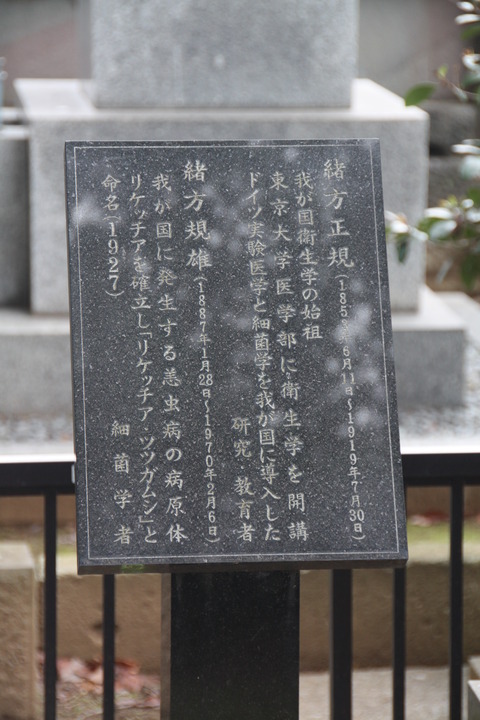 緒方正規(1853年6月11日〜1919年7月30日)
我が国衛生学の始祖
東京大学医学部に衛生学を開講
ドイツ実験医学と細菌学を我が国に導入した
研究・教育者
緒方規雄(1887年1月28日〜1970年2月6日)
我が国に発生する恙虫病の病原体
リケッチアを確立し「リケッチア・ツツガムシ」と
命名(1927)
細菌学者